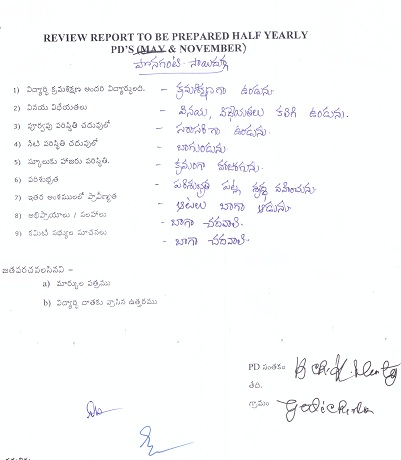 REVIEW REPORT TO BE PREPARED HALF YEARLY
PD'S (MAY & NOVEMBER)
1) విద్యార్థి క్రమశిక్షణ అందరి విద్యార్థులది. - క్రమశిక్షణగా ఉండును.
2) వినయ విధేయతలు - వినయ, విధేయతలు కలిగి ఉండును.
3) పూర్వపు పరిస్థితి చదువులో - సరాసరిగా ఉండును.
4) నేటి పరిస్థితి చదువులో - బాగుండును.
5) స్కూలుకు హాజరు పరిస్థితి. - క్రమంగా హాజరగును.
6) పరిశుభ్రత - పరిశుభ్రత పట్ల శ్రద్ధ వహించును.
7) ఇతర అంశములలో ప్రావీణ్యత - ఆటలు బాగా ఆడును.
8) అభిప్రాయాలు / సలహాలు - బాగా చదవాలి.
9) కమిటి సభ్యుల సూచనలు - బాగా చదవాలి.
జతపరచవలసినవి –
a) మార్కుల పత్రము
b) విద్యార్థి దాతకు వ్రాసిన ఉత్తరము
PD సంతకం
తేది.
గ్రామం